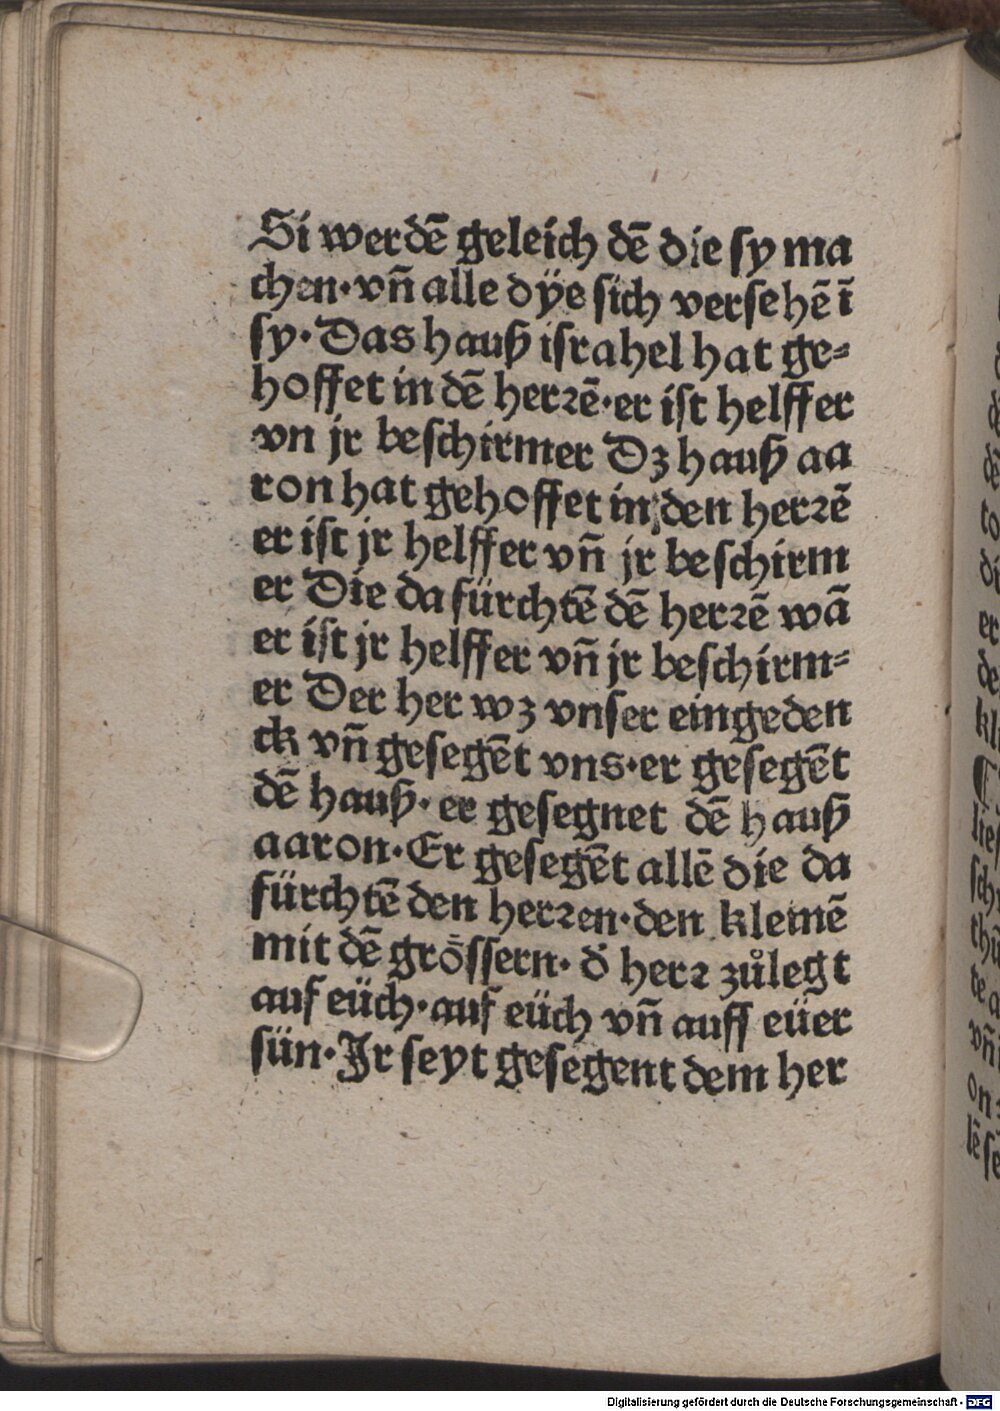 Si werdē geleich dē die sy ma
chen·vn̄ alle dÿe sich versehē ī
sy·Das hauß israhel hat ge=
hoffet in dē herꝛē·er ist helffer
vn jr beschirmer Dz hauß aa
ron hat gehoffet in den herꝛē
er ist jr helffer vn̄ jr beschirm
er Die da fürchtē dē herꝛē wā
er ist jr helffer vn̄ jr beschirm=
er Der her wz vnser eingeden
ck vn̄ gesegēt vns·er gesegēt
dē hauß·er gesegnet dē hauß
aaron·Er gesegēt allē die da
fürchtē den herꝛen·den kleinē
mit dē grössern·d̄ herꝛ zůlegt
auf eüch·auf eüch vn̄ auff eüer
sün·Jr seyt gesegent dem her
Digitalisierung gefördert durch die Deutsche Forschungsgemeinschaft - DFG